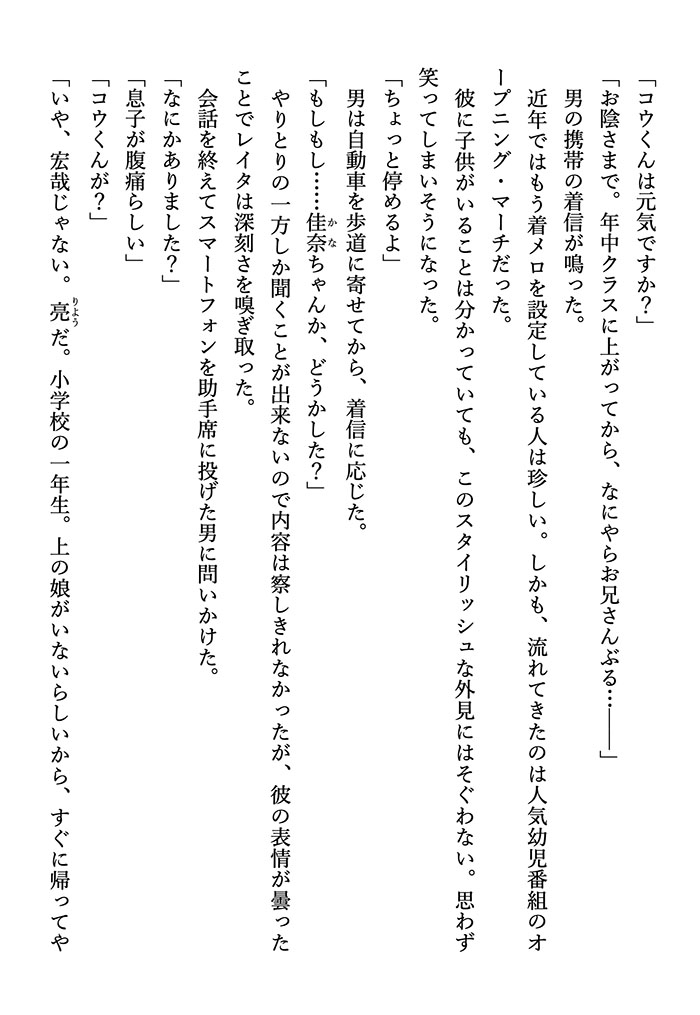 「コウくんは元気ですか？」
「お陰さまで。年中クラスに上がってから、なにやらお兄さんぶる…――」
男の携帯の着信が鳴った。
近年ではもう着メロを設定している人は珍しい。しかも、流れてきたのは人気幼児番組のオ
ープニング・マーチだった。
彼に子供がいることは分かっていても、このスタイリッシュな外見にはそぐわない。思わず
笑ってしまいそうになった。
「ちょっと停めるよ」
男は自動車を歩道に寄せてから、着信に応じた。
「もしもし……佳奈ちゃんか、どうかした？」
やりとりの一方しか聞くことが出来ないので内容は察しきれなかったが、彼の表情が曇った
ことでレイタは深刻さを嗅ぎ取った。
会話を終えてスマートフォンを助手席に投げた男に問いかけた。
「なにかありました？」
「息子が腹痛らしい」
「コウくんが？」
「いや、宏哉じゃない。亮だ。小学校の一年生。上の娘がいないらしいから、すぐに帰ってや